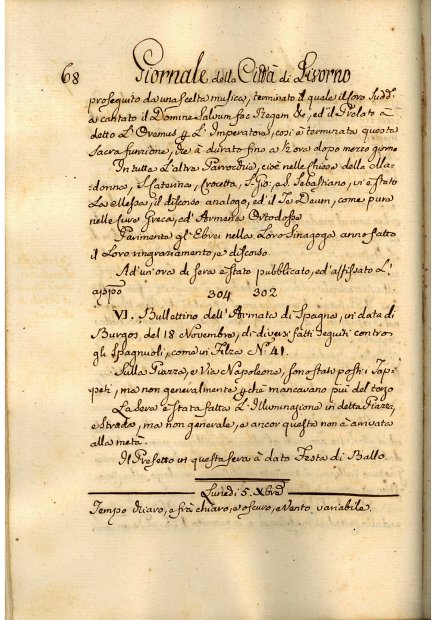 68 Giornale della Città di Livorno
proseguito da una scelta musica, terminato il quale il Coro sudd.º
à cantato il Domine Salvum fac Regem &c, ed il Prelato à
detto l'Oremus p. l'Imperatore, così è terminata questa
sacra funzione, che à durato fino a ½ ora dopo mezzo giorno
In tutte l'altre Parrocchie, cioè nelle Chiese della Ma-
donna, S. Caterina, Crocetta, S. Gio: e S. Sebastiano, vi è stato
La Messa, il discorso analogo, ed il Te Deum, come pure
nelle sure Greca, ed Armena Ortodossa
Parimente gl'Ebrei nella Loro Sinagoga anno fatto
il Loro ringraziamento, e discorso.
Ad un'ora di sera è stato pubblicato, ed affissato l'
appo
304 302
VI. Bullettino dell'Armata di Spagna, in data di
Burgos, del 18 Novembre, di diversi fatti seguiti contro
gli Spagnuoli, come in Filza N.º 41.
Sulla Piazza, e Via Napoleone, sono stati posti i Tap-
peti, ma non generalmente p. che mancavano più del terzo
La Sera è stata fatta l'Illuminazione in detta Piazza,
e Strada, ma non generale, e ancor questa non è arrivata
alla metà.
Il Prefetto in questa sera à dato Festa di Ballo.
Lunedì 5. Xbre
Tempo vario, e frà chiaro, e oscuro, e Vento, variabile.